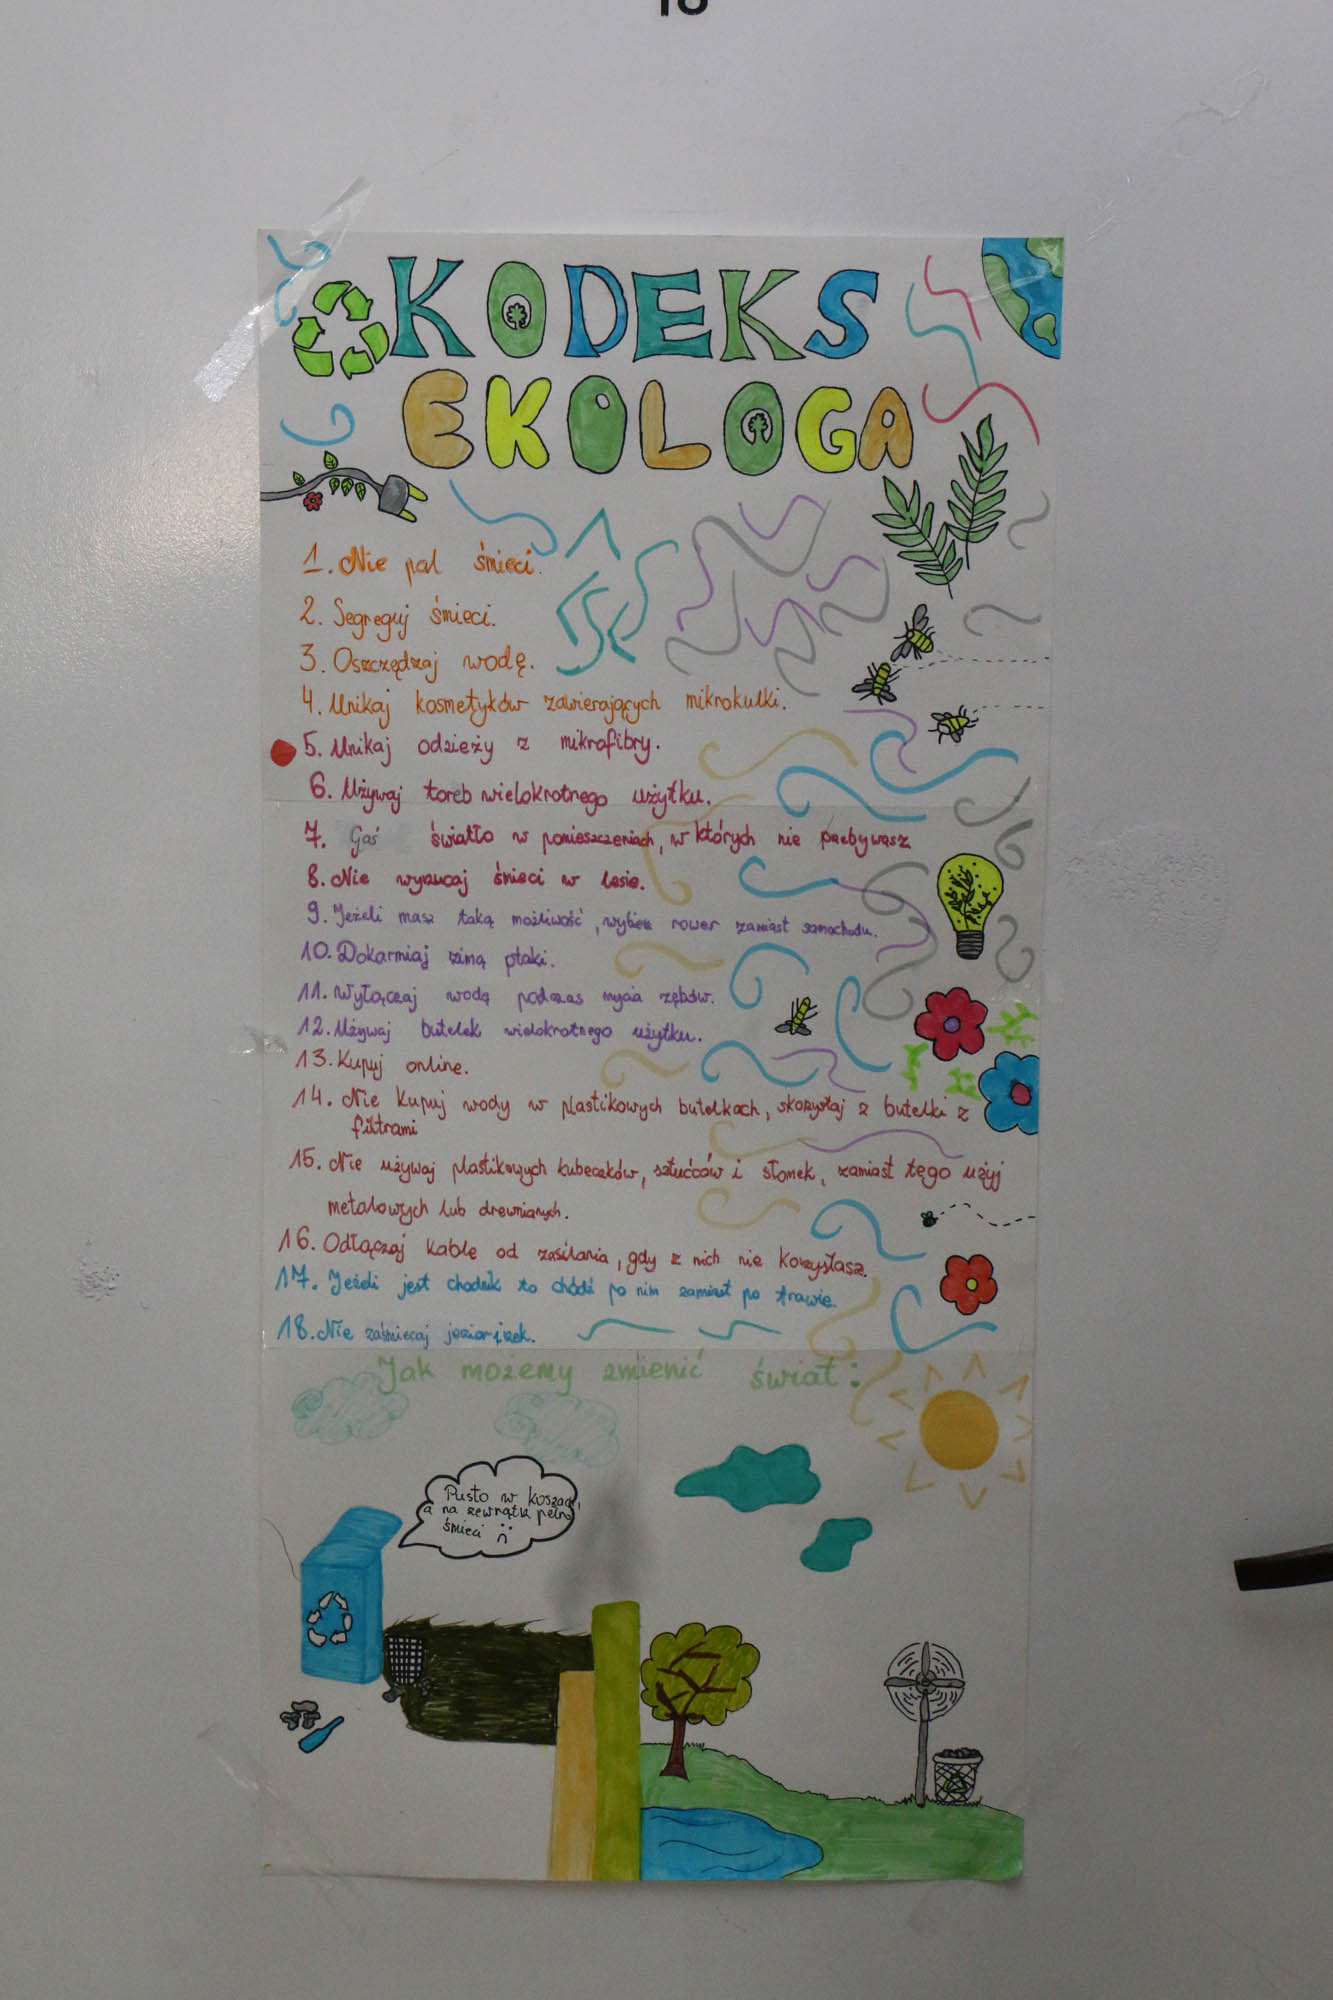 KODEKS
EKOLOGA
1. Nie pal śmieci.
2. Segreguj śmieci.
3. Oszczędzaj wodę.
4. Unikaj kosmetyków zawierających mikrokulki.
5. Unikaj odzieży z mikrofibry.
6. Używaj toreb wielokrotnego użytku.
7. Gaś światło w pomieszczeniach, w których nie przebywasz
8. Nie wyrzucaj śmieci w lesie.
9. Jeżeli masz taką możliwość, wybierz rower zamiast samochodu.
10. Dokarmiaj zimą ptaki.
11. Wyłączaj wodę podczas mycia zębów.
12. Używaj butelek wielokrotnego użytku.
13. Kupuj online.
14. Nie kupuj wody w plastikowych butelkach, skorzystaj z butelki z
filtrami
15. Nie używaj plastikowych kubeczków, sztućców i słomek, zamiast tego użyj
metalowych lub drewnianych.
16. Odłączaj kable od zasilania, gdy z nich nie korzystasz.
17. Jeżeli jest chodnik to chódź po nim zamiast po trawie.
18. Nie zaśmiecaj jeziorżek.
Jak możemy zmienić świat:
Pusto w koszach,
a na zewnątrz pełno
śmieci :(